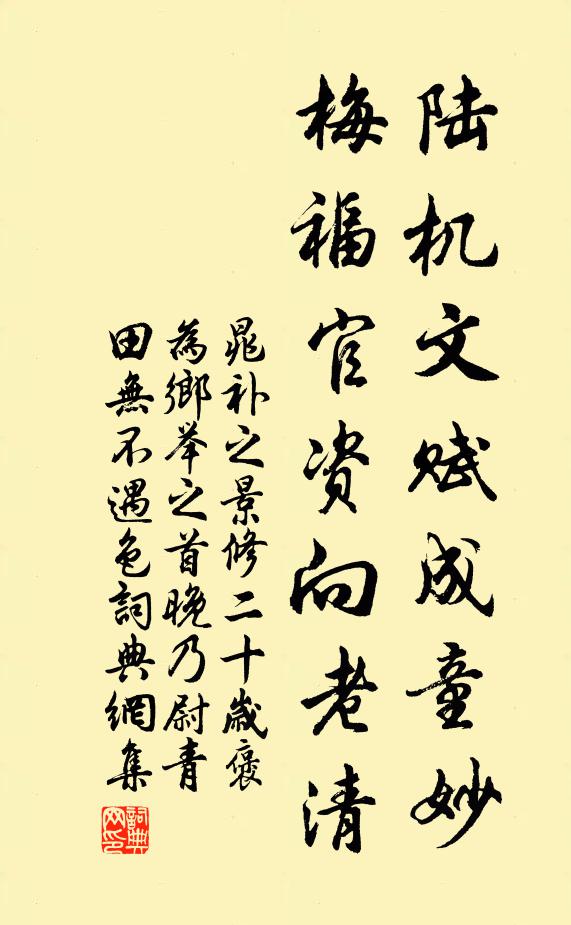 陆机文赋成童妙
梅福官资向老清
晁补之景修二十岁褒
为鄉举之首晚乃尉青
田無不遇色詞典網集
詞典网印